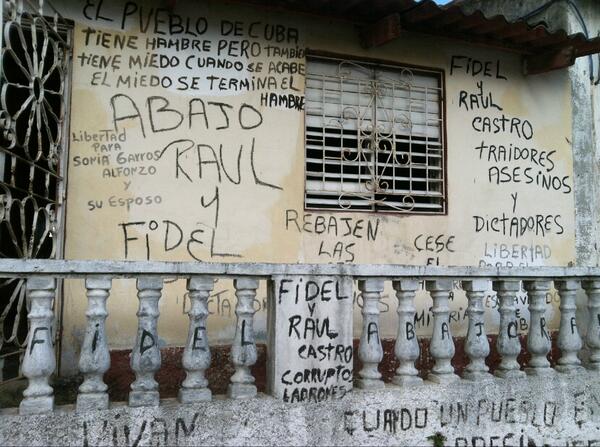 EL PUEBLO DE CUBA
TIENE HAMBRE PERO TAMBIEN
TIENE MIEDO CUANDO SE ACABE
EL MIEDO SE TERMINA EL
HAMBRE
ABAJO
RAUL
y
FiDEL
Libertad
PARA
SONIA GARROS
ALFONZO
y
SU ESPOSO
REBAJEN
LAS
CESE
EL
FiDEL
y
RAUL
CASTRO
TRAIDORES
ASESINOS
y
DiCTADORES
LIBERTAD
FiDEL
FiDEL
y
RAUL
CASTRO
CORRUPTOS
LADRONES
ABAJO RA
VIVAN
CUANDO UN PUEBLO E